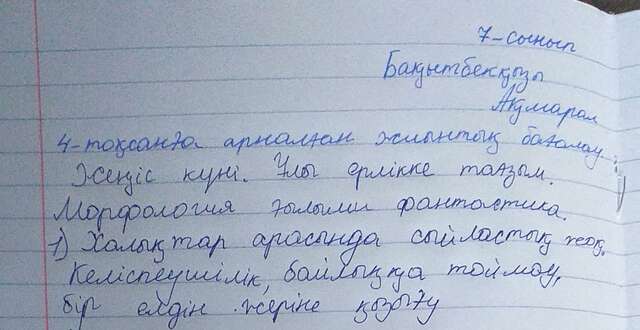 7-сынып
Бақытбекқызы
Ақмарал
4-тоқсанға арналған жиынтық бағалау.
Жеңіс күні. Ұлы ерлікке тағзым.
Морфология ғылыми фантастика.
1) Халықтар арасында сыйластық жоқ.
Келіспеушілік, байлыққа тоймау,
бір елдің жеріне қызығу